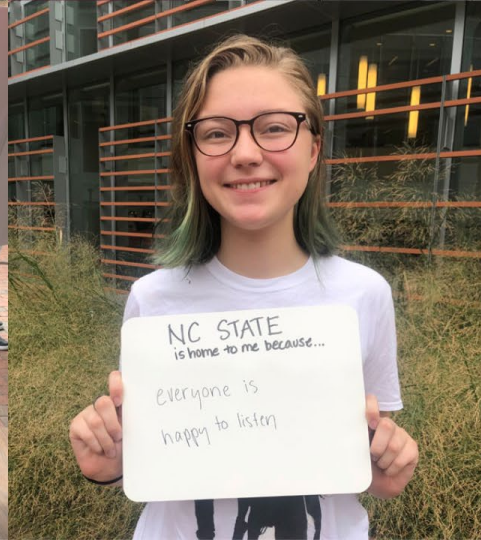 NC STATE
is home to me because...
everyone is
happy to listen